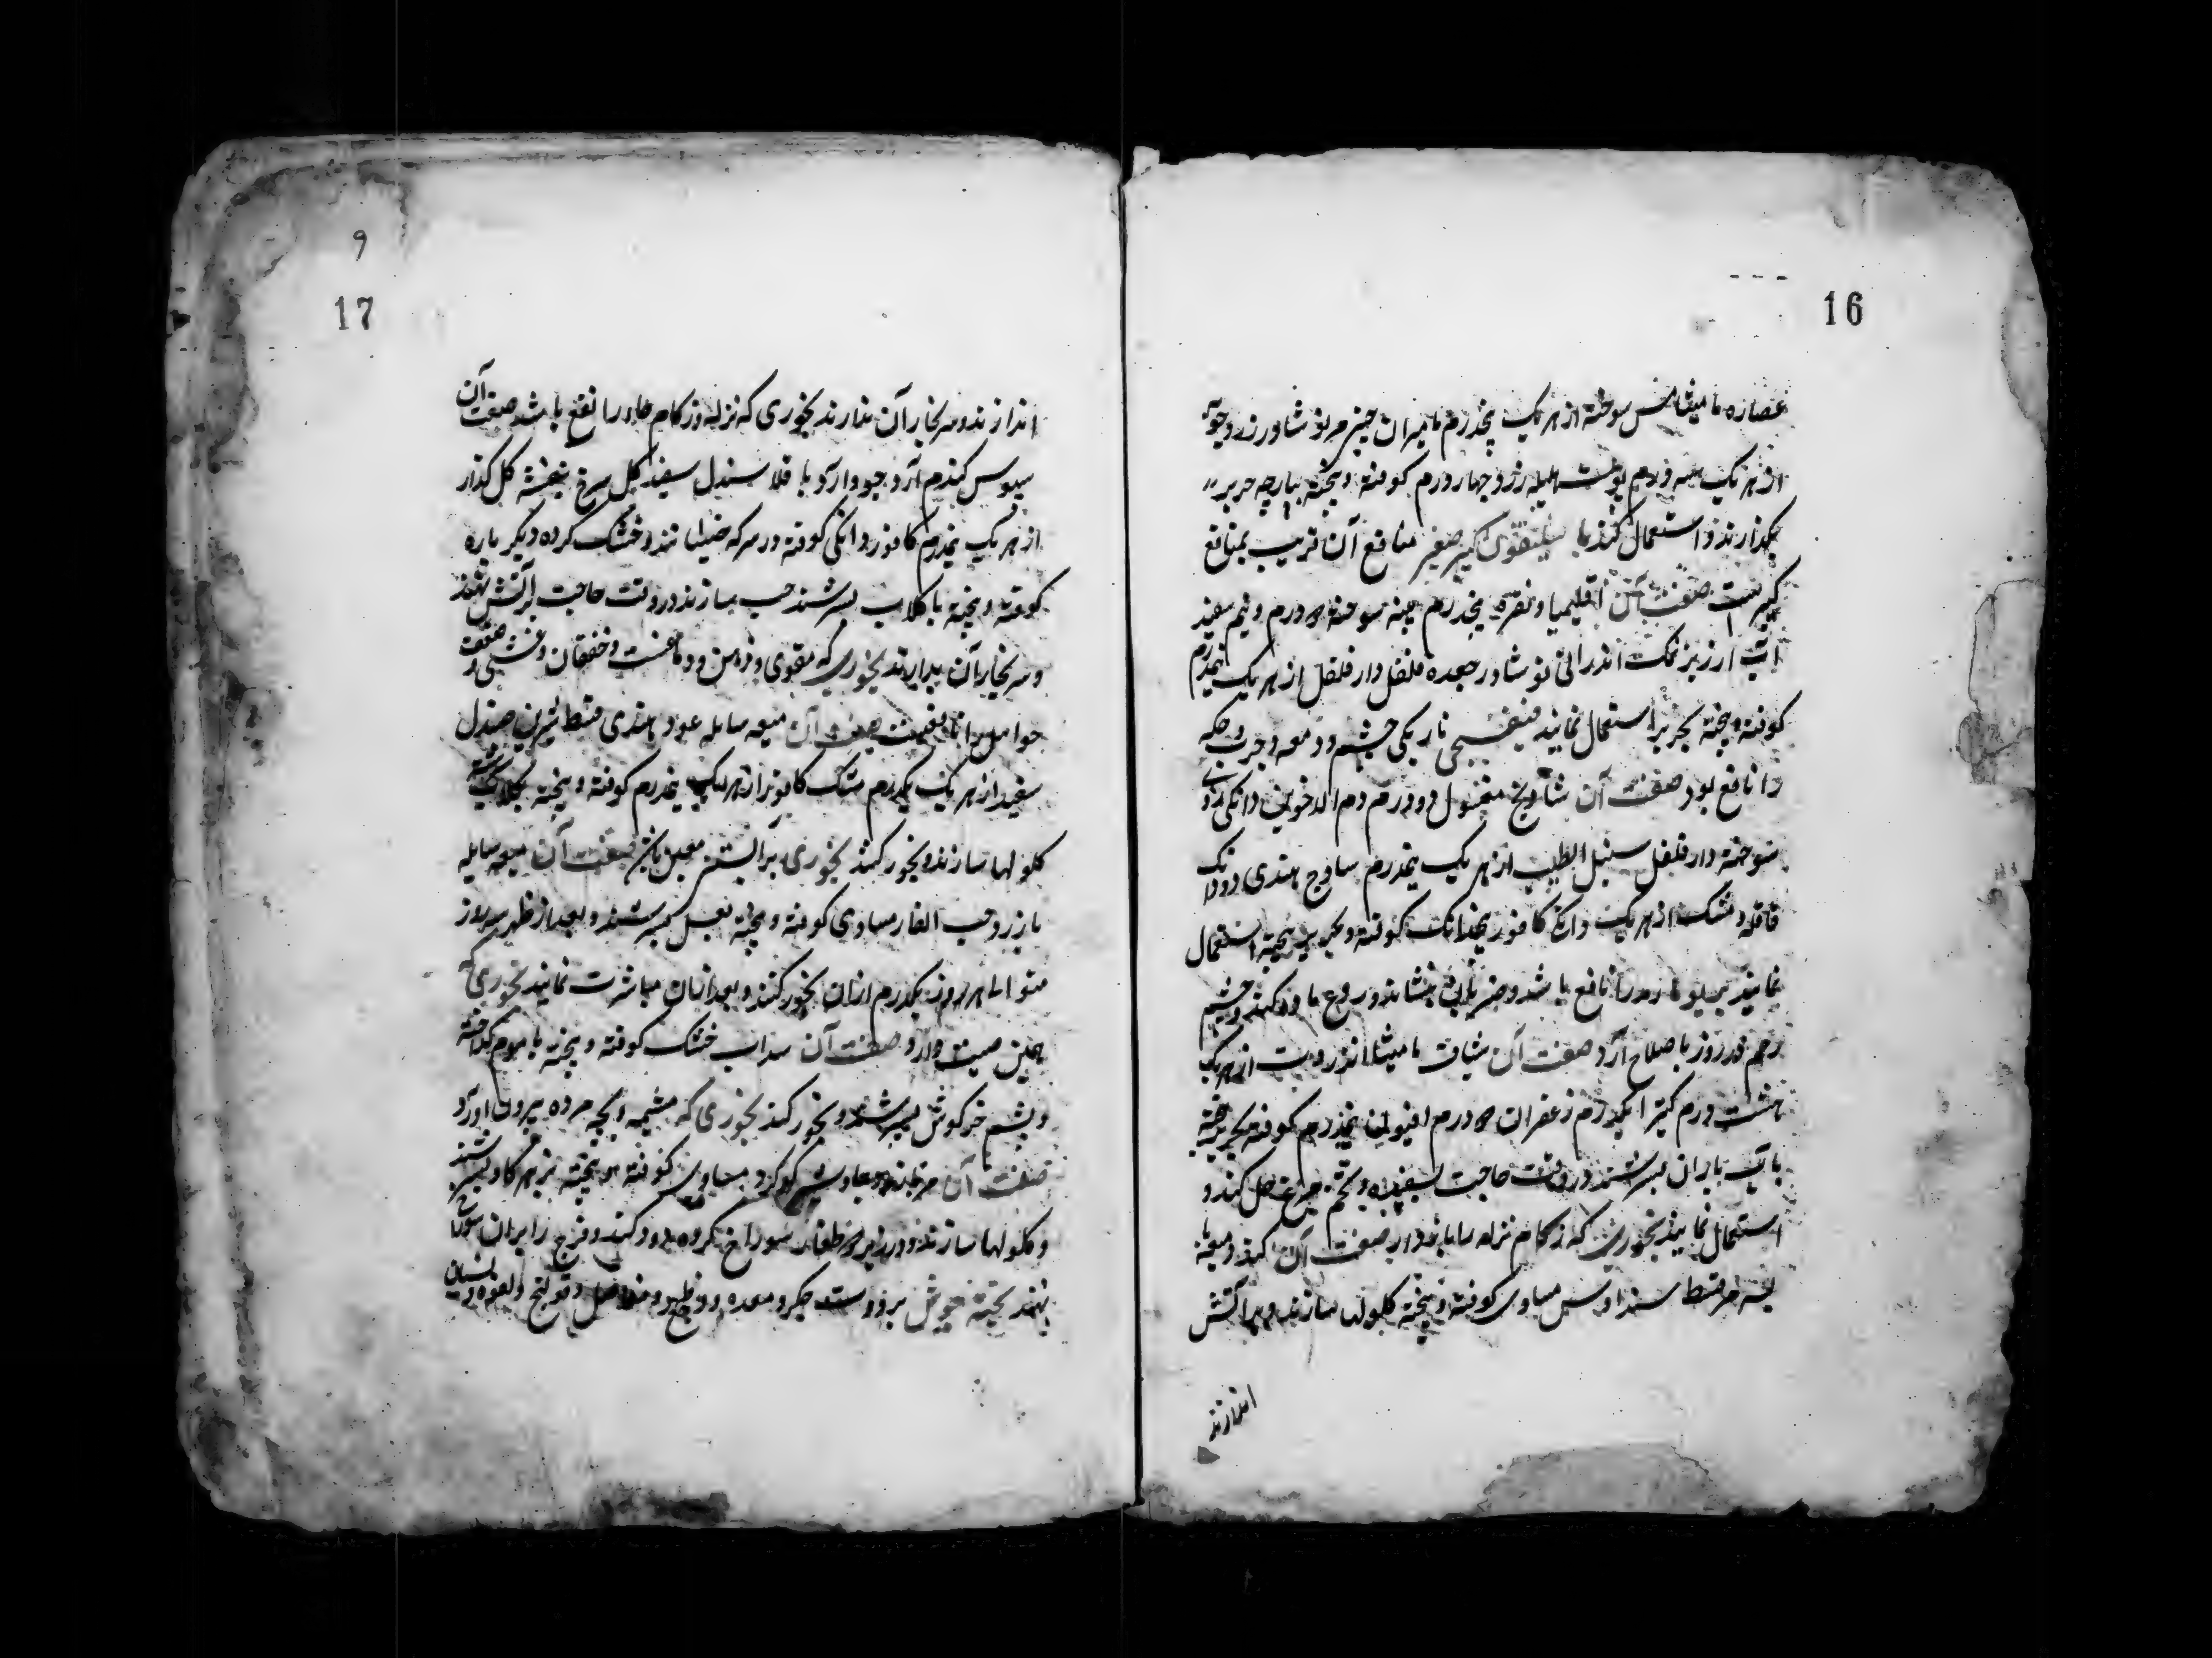 16
عصاره مامیثا مس سوخته از هر یک پنجدرم مامیران چینی مر نوشادر زردچوبه
از هر یک سه درم پوست هلیله زرد چهار درم کوفته و پخته بپارچه حریر
بگذارند و استعمال کنند باسلیقون کبیر صغیر منافع آن قریب بمنافع
کبیر است صفت آن اقلیمیا و نقره پنجدرم مس سوخته دو درم و نیم سفید
آب ارزیز نمک اندرانی نوشادر جعده فلفل دار فلفل از هر یک نیمدرم
کوفته و پخته بحریر استعمال نمایند بنفسجی تاریکی چشم و دمعه و جرب و حکه
را نافع بود صفت آن شادنج مغسول دو درم دم الاخوین دانکی
سوخته دار فلفل سنبل الطیب از هر یک نیمدرم ساذج هندی دو دانک
قاقله و مشک از هر یک دانک کافور نیمدانک کوفته و بحریر پخته استعمال
نمایند رمد را نافع باشد و ضربان بنشاند و چشم
صفت آن شیاف مامیثا انزروت از هر یک
هشت درم کتیرا یکدرم زعفران دو درم افیون نیمدرم کوفته بحریر پخته
بآب باران بسرشند در وقت حاجت بسفیده تخم مرغ حل کنند و
استعمال نمایند بخوری که زکام نزله را باز دارد صفت آن کندر میعه یابسه
مر قسط سندروس مساوی کوفته و پخته کلولها سازند و بر آتش
اندازند
9
17
اندازند و سر بخار آن بدارند بخوری که نزله و زکام حار را نفع باشد صفت آن
سبوس کندم آرد جو و آرد باقلا سندل سفید کل سرخ بنفشه کل
از هر یک نیمدرم کافور دانکی کوفته در سرکه خیسانند و خشک کرده دیگر باره
کوفته و پخته با کلاب بسرشند حب سازند در وقت حاجت بر آتش نهند
و سر بخار آن بدارند بخوری که مقوی ذهن و دماغست و خفقان و غشی و ضعف
حوامل را نافعست صفت آن میعه سایله عود هندی قسط شیرین صندل
سفید از هر یک یکدرم مشک کافور از هر یک نیمدرم کوفته و پخته بکلاب سرشته
کلولها سازند و بخور کنند بخوری بر آبستن صفت آن میعه سایله
بازرد حب الغار مساوی کوفته و پخته بعسل بسرشند و بعد از طهر سه روز
متوالی هر روز یکدرم ازان بخور کنند و بعد ازان مباشرت نمایند بخوری که
همین صفت دارد صفت آن سداب خشک کوفته و پخته با موم کداخته
و پشم خرکوش بسرشند و بخور کنند بخوری که مشیمه و بچه مرده بیرون آورد
صفت آن مر جاوشیر کوکرد مساوی کوفته و پخته بزهره کاو بسرشند
و کلولها سازند و در زیر طغار سوراخ کرده دود کنند و فرج را بران سوراخ
نهند جکر و معده و وجع ظهر و مفاصل و قولنج و لقوه و نسیان